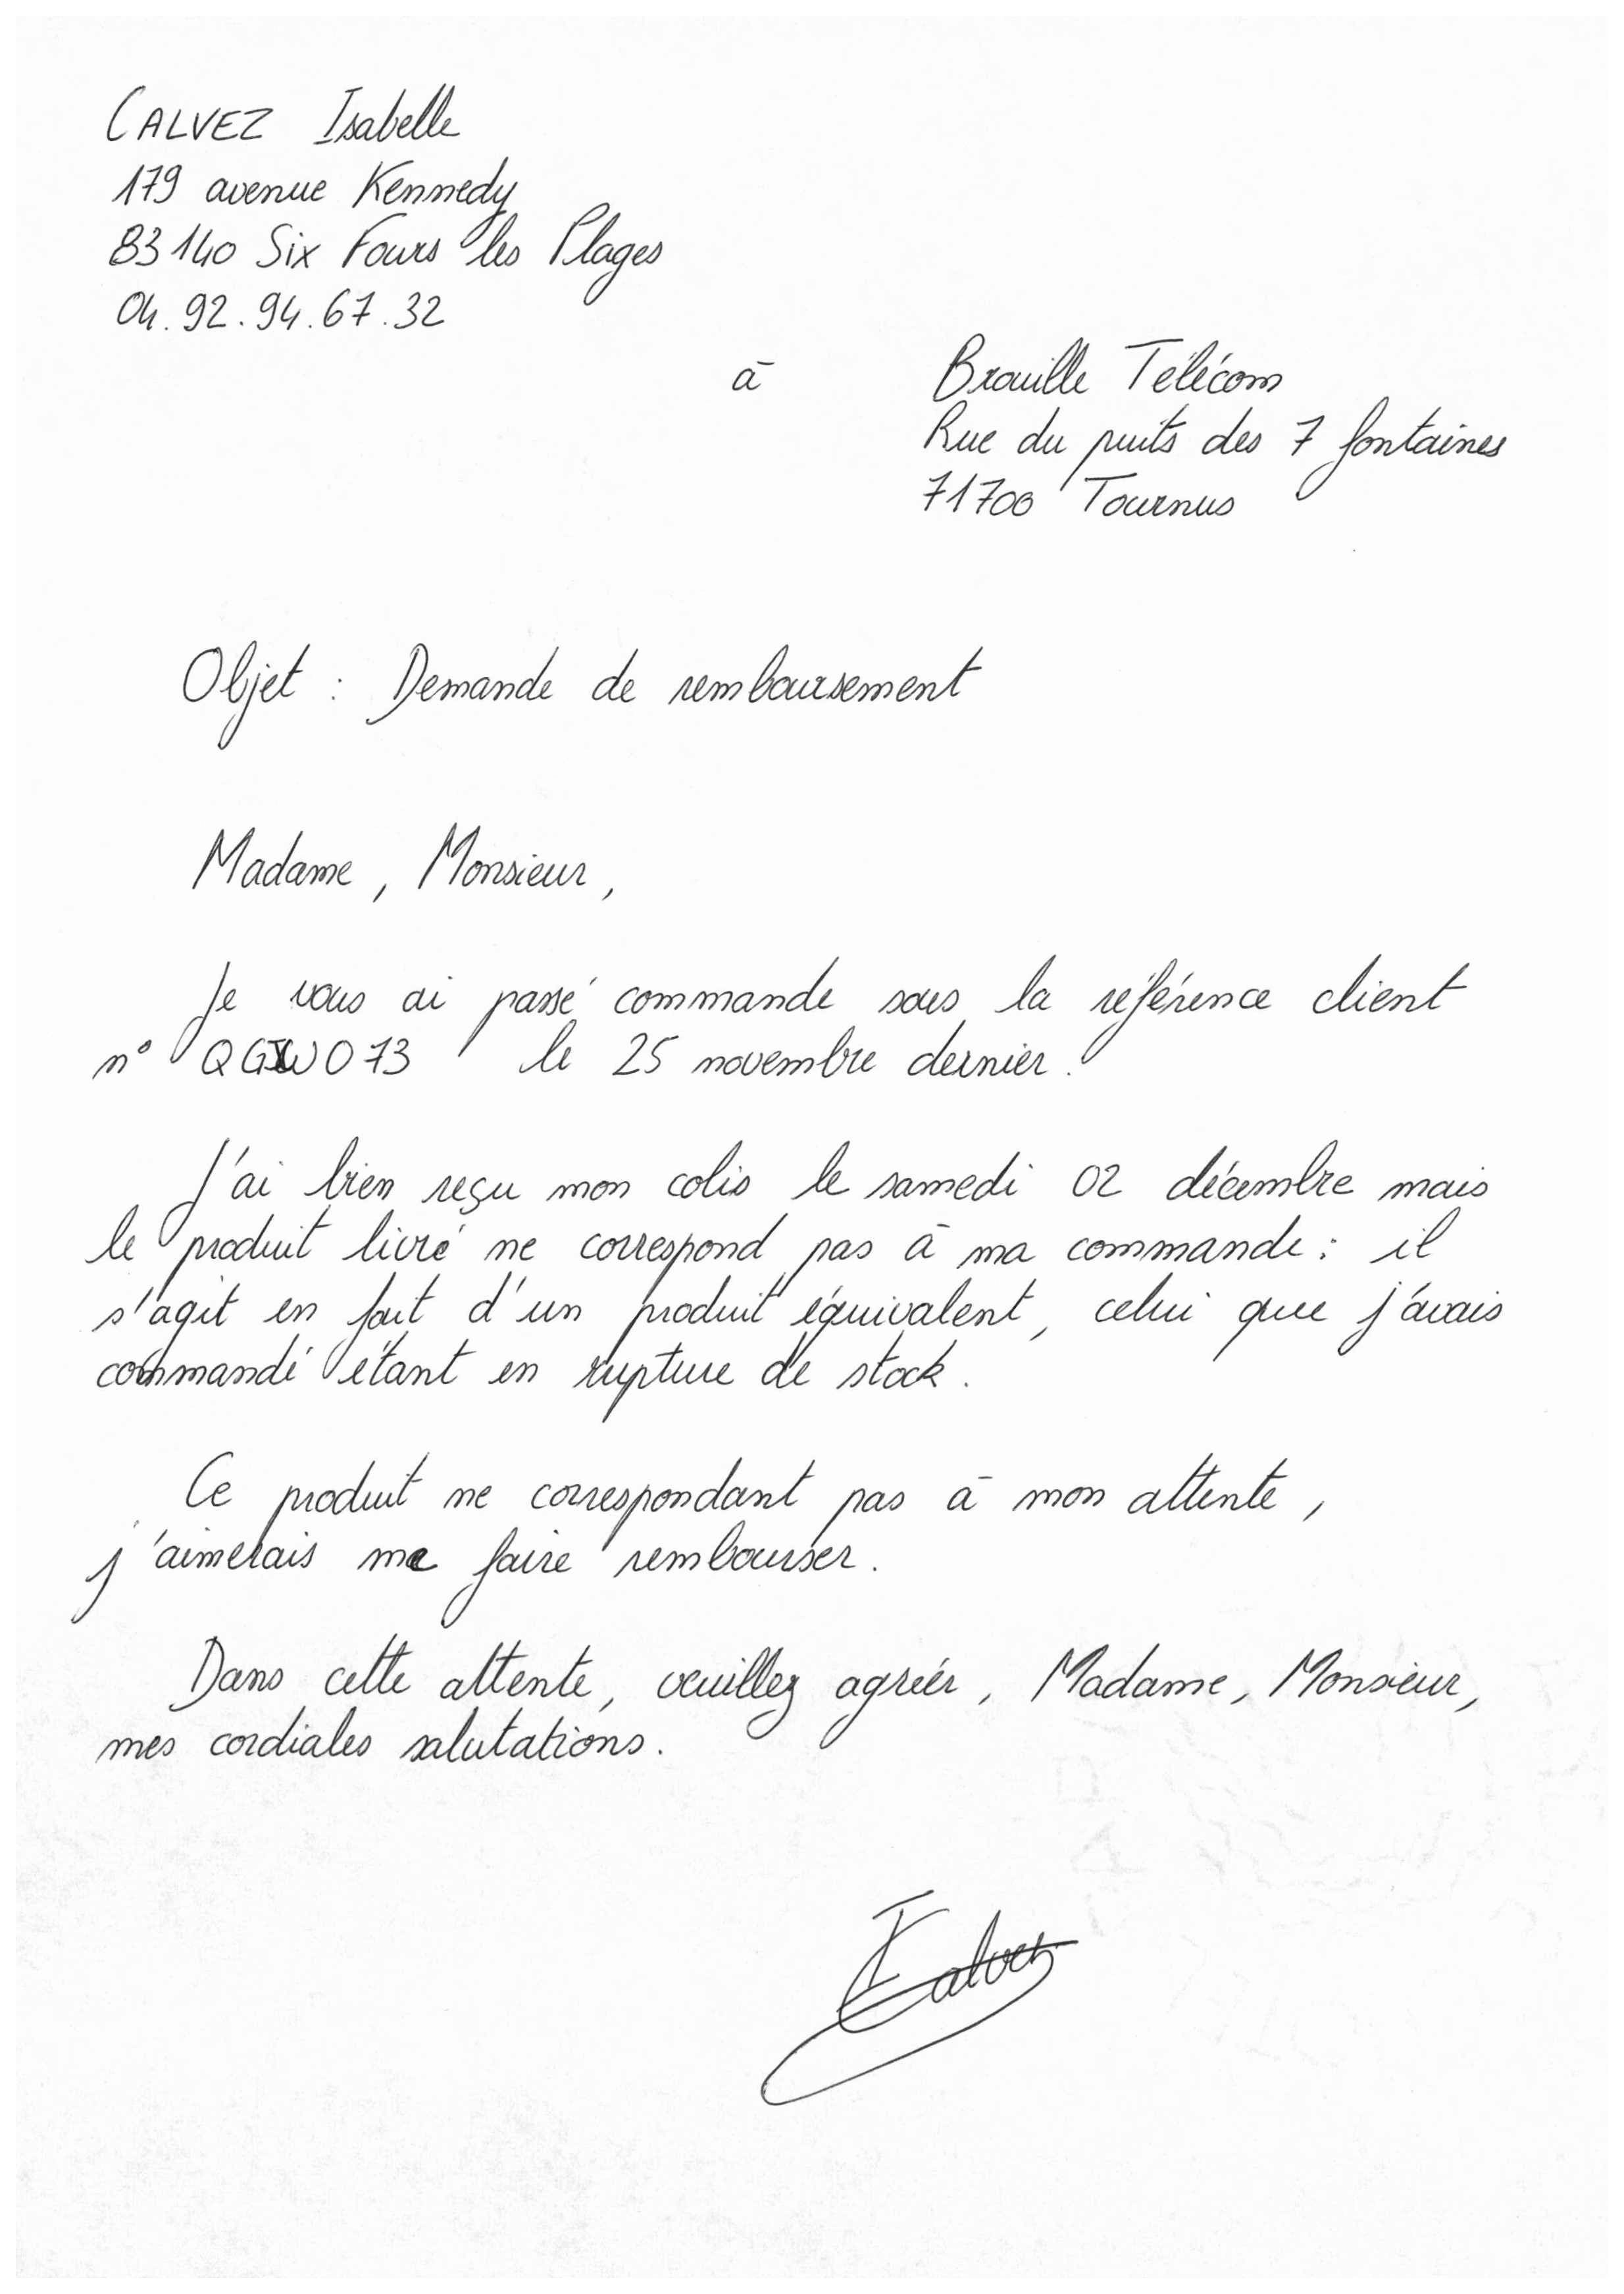 CALVEZ Isabelle
179 avenue Kennedy
83140 Six Fours les Plages
04.92.94.67.32
à Brouille Télécom
Rue du puits des 7 fontaines
71700 Tournus
Objet : Demande de remboursement
Madame, Monsieur,
Je vous ai passé commande sous la référence client
n° le 25 novembre dernier.
J'ai bien reçu mon colis le samedi 02 décembre mais
le produit livré ne correspond pas à ma commande : il
s'agit en fait d'un produit équivalent, celui que j'avais
commandé étant en rupture de stock.
Ce produit ne correspondant pas à mon attente,
j'aimerais me faire rembourser.
Dans cette attente, veuillez agréér, Madame, Monsieur,
mes cordiales salutations.
ICalvez